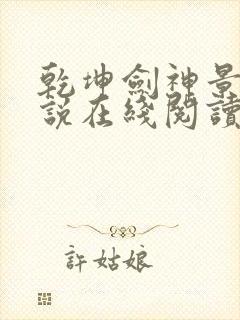 乾坤劍神景
說在綫閱讀
許姑娘